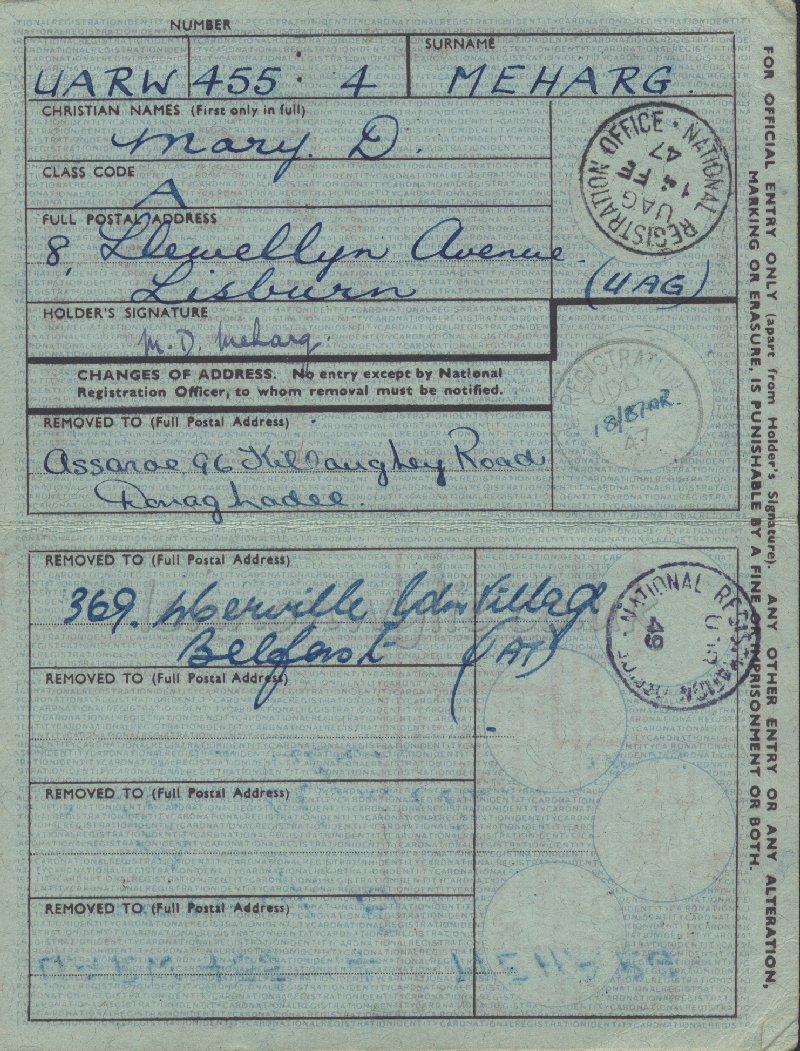 NUMBER
UARW 455 : 4
SURNAME
MEHARG.
CHRISTIAN NAMES (First only in full)
Mary. D.
CLASS CODE
A
FULL POSTAL ADDRESS
8, Llewellyn Avenue.
Lisburn
(UAG)
HOLDER'S SIGNATURE
M. D. Meharg.
NATIONAL REGISTRATION OFFICE
14 FE
47
UAG
CHANGES OF ADDRESS. No entry except by National
Registration Officer, to whom removal must be notified.
REMOVED TO (Full Postal Address)
Assaroe 96 Killaughey Road
Donaghadee.
REGISTRATI
18/3/MR.
47
REMOVED TO (Full Postal Address)
369. Merville Gdn Village
Belfast (AT)
NATIONAL REGISTRATION
49
REMOVED TO (Full Postal Address)
REMOVED TO (Full Postal Address)
REMOVED TO (Full Postal Address)
FOR OFFICIAL ENTRY ONLY (apart from Holder's Signature). ANY OTHER ENTRY OR ANY ALTERATION,
MARKING OR ERASURE, IS PUNISHABLE BY A FINE OR IMPRISONMENT OR BOTH.